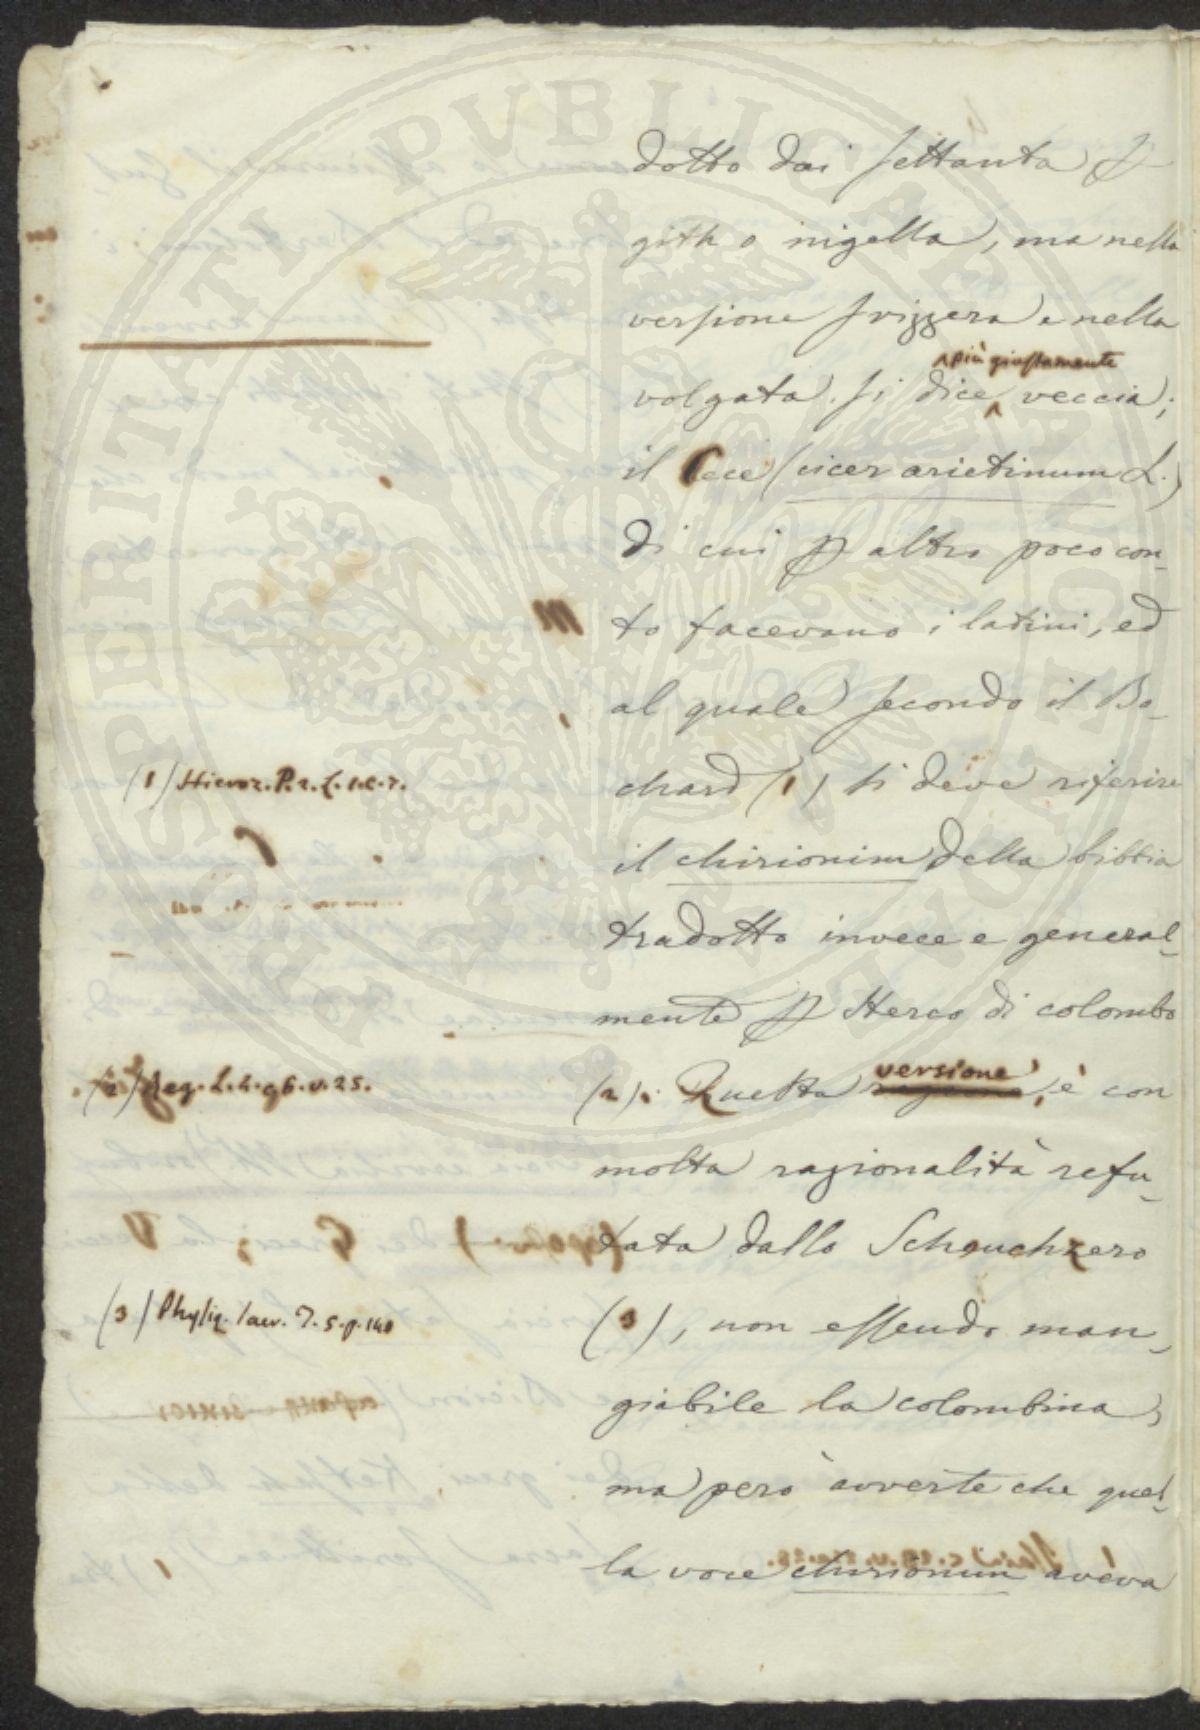 dotto dai settanta p
gith o nigella, ma nella
versione svizzera e nella
più giustamente
volgata si dice veccia;
il Cece (cicer arietinum L.)
di cui p altro poco con-
to facevano i latini, ed
al quale secondo il Bo-
(1) Hieroz. P. 2. L. 1. C. 7.
chard (1) si deve riferire
il chirionim della bibbia
tradotto invece e general-
mente p sterco di colombo
(2) Reg. L. 4. c. 6. v. 25.
versione
(2). Questa è con
molta ragionalità refu-
tata dallo Scheuchzero
(3) Physiq. sacr. T. 5. p. 140
(3), non essendo man-
giabile la colombina,
ma però avverte che quel-
la voce chirionim aveva